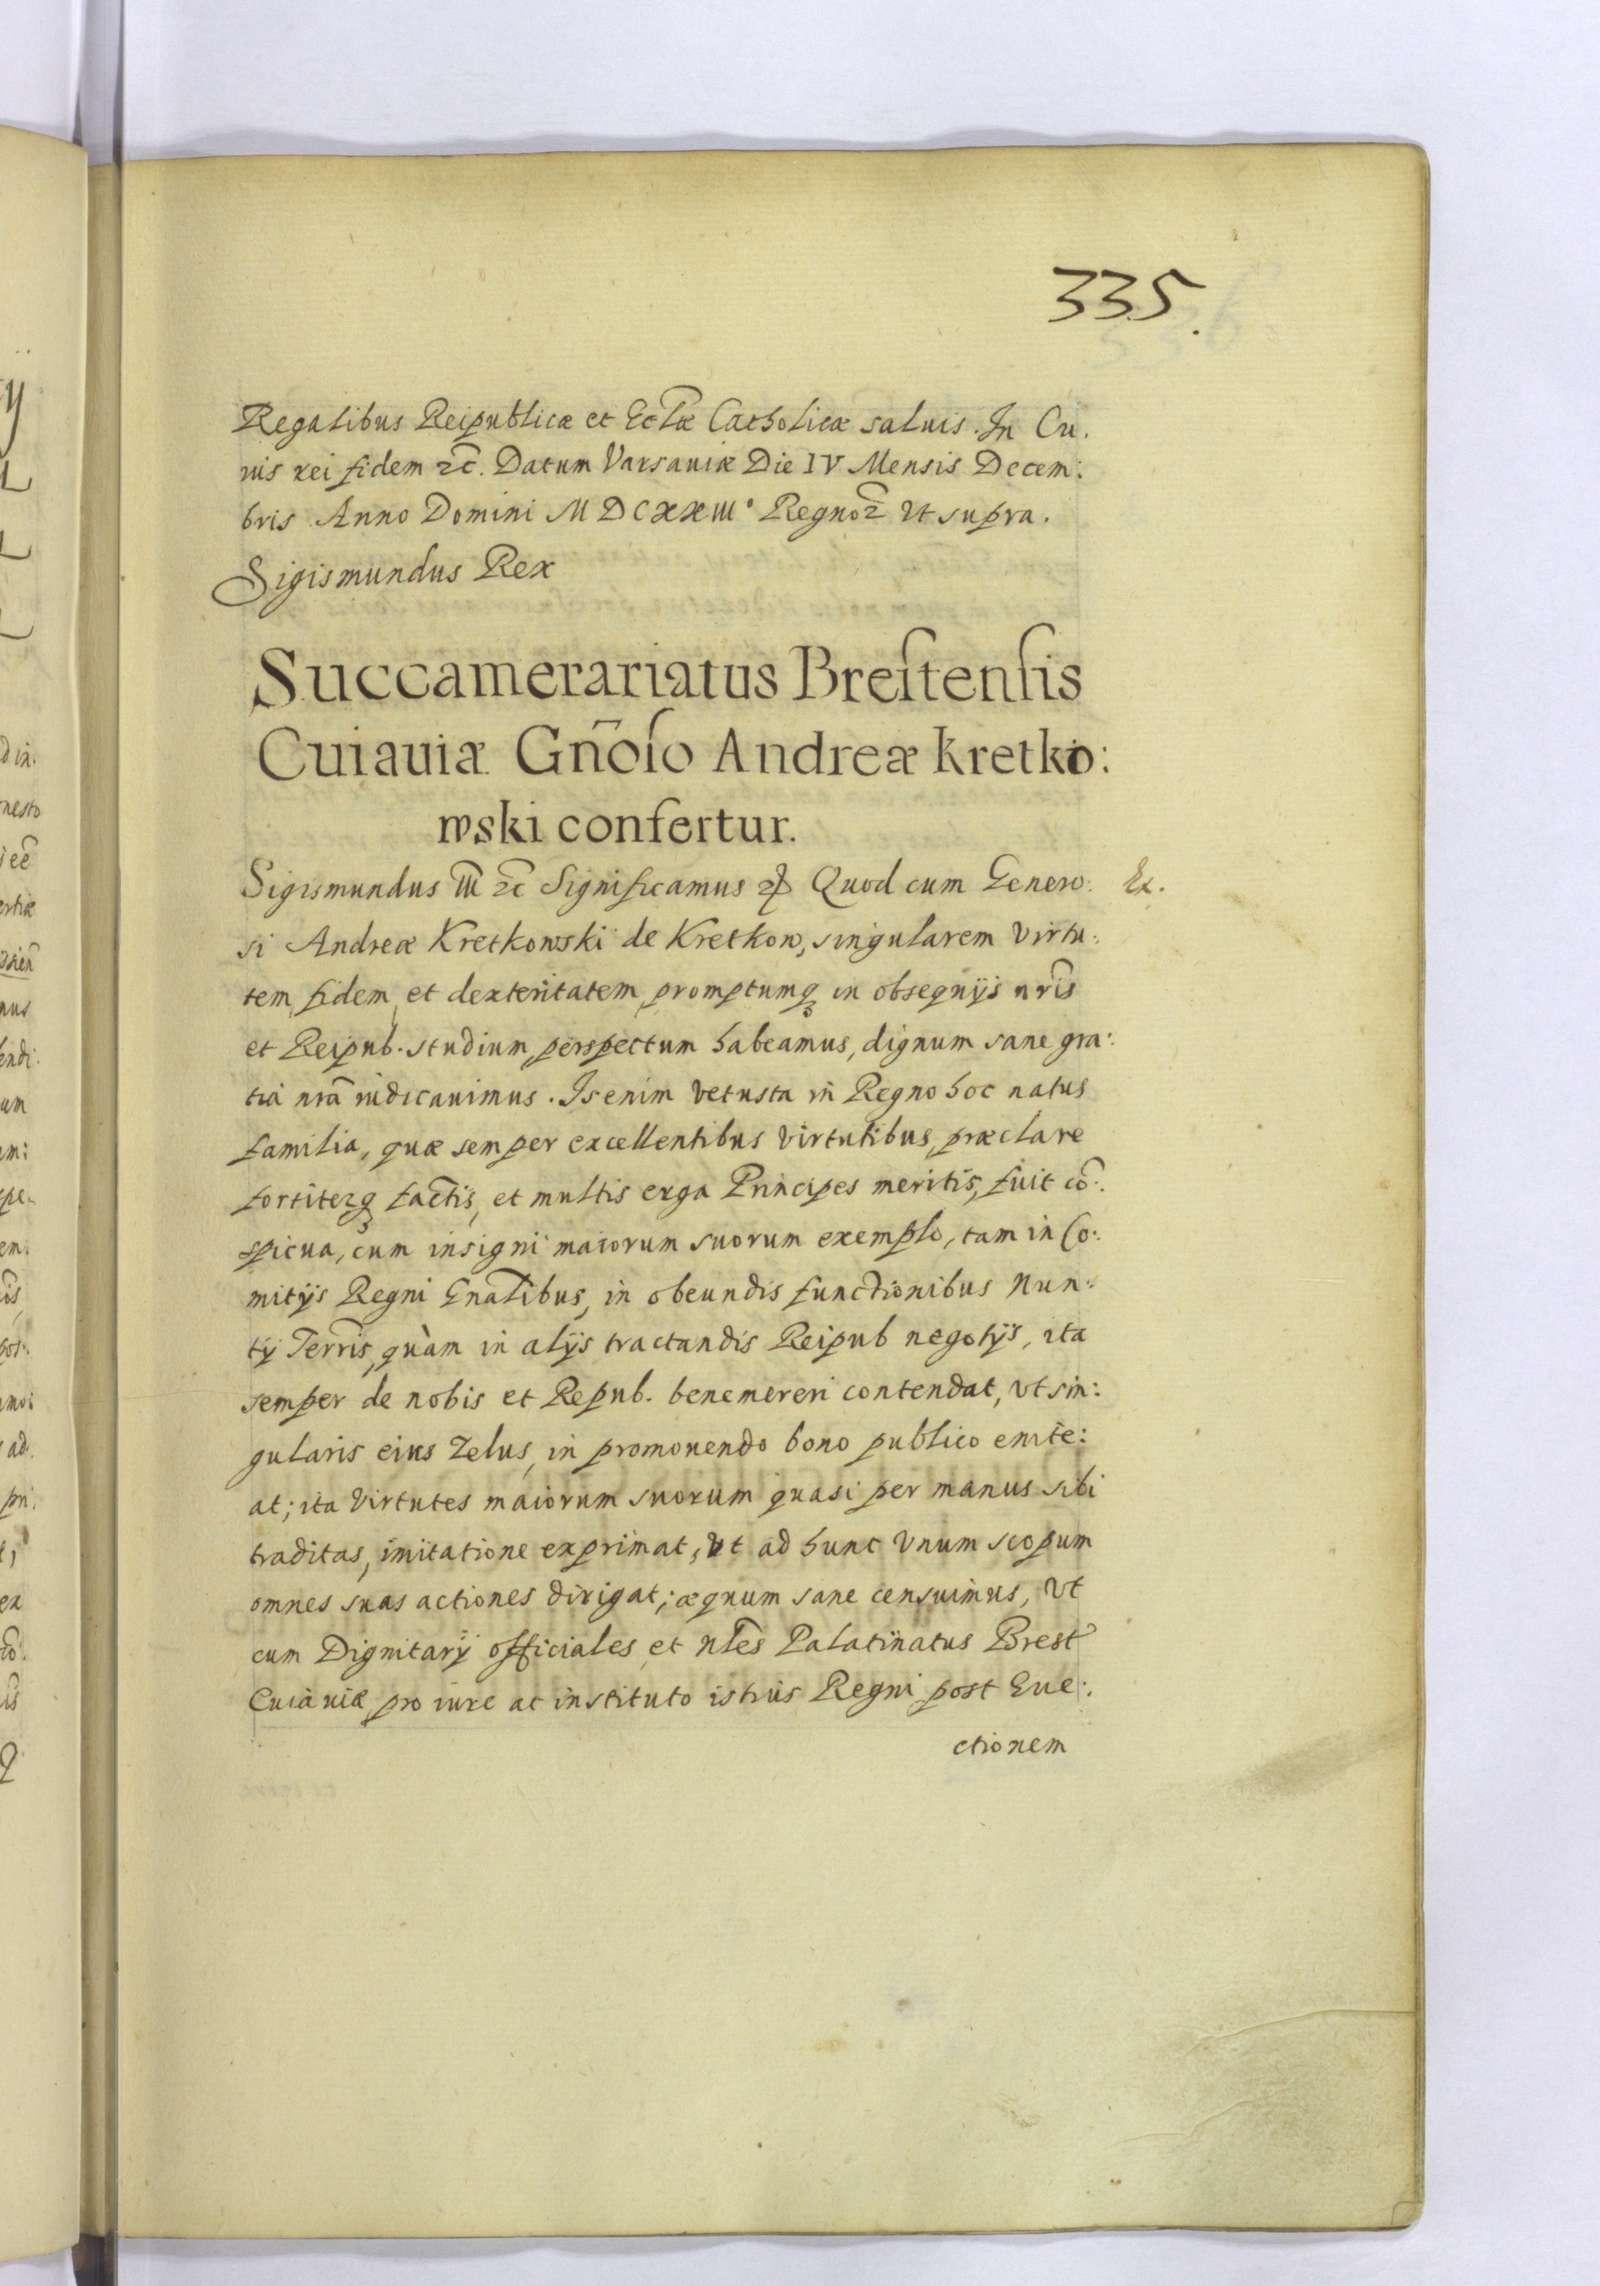 335.
Regalibus Reipublicæ et Ecl̃æ Catholicæ saluis. In Cu.
ius rei fidem ꝛc̃. Datum Varsauiæ Die IV Mensis Decem:
bris Anno Domini MDCXXIII° Regnoꝝ̃ Vt supra.
Sigismundus Rex
Succamerariatus Breſtenſis
Cuiauiæ Gñoſo Andreæ Kretko:
wski confertur.
Sigismundus III ꝛc̃ Significamus ꝛc Quod cum Genero: Ex.
si Andreæ Kretkowski de Kretkow, singularem virtu:
tem, fidem, et dexteritatem, promptumq; in obsequijs nr̃is
et Reipub. studium, perspectum habeamus, dignum sane gra:
tia nrã iudicauimus. Is enim vetusta in Regno hoc natus
familia, quæ semper excellentibus virtutibus, præclare
fortiterq; factis, et multis erga Principes meritis, fuit cõ:
spicua, cum insigni maiorum suorum exemplo, tam in Co:
mitijs Regni Gnãlibus, in obeundis functionibus Nun:
tij Terris̃, quàm in alijs tractandis Reipub negotijs, ita
semper de nobis et Repub. benemereri contendat, vt sin:
gularis eius zelus, in promouendo bono publico enite:
at; ita virtutes maiorum suorum quasi per manus sibi
traditas, imitatione exprimat, vt ad hunc vnum scopum
omnes suas actiones dirigat; æquum sane censuimus, vt
cum Dignitarij officiales et Nl̃es Palatinatus Brest
Cuiauiæ, pro iure ac instituto istius Regni post Eue:
ctionem